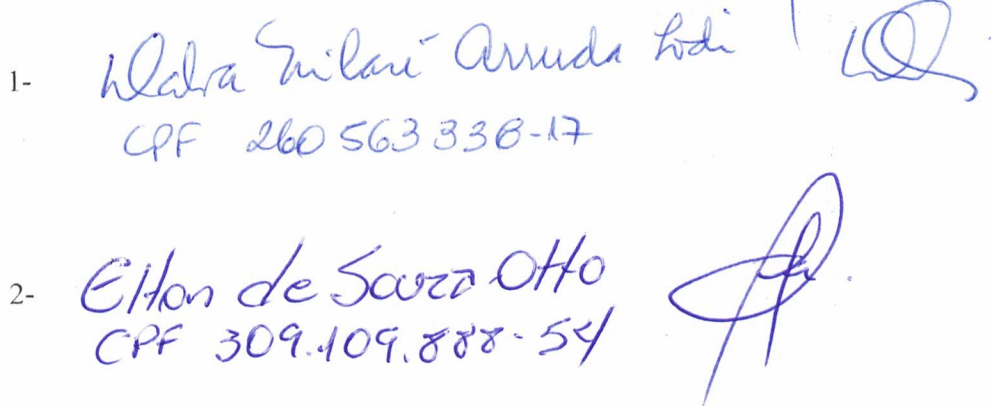 1- Dalva Milaré Arruda Lodi
CPF 260 563 338-17
2- Elton de Souza Otto
CPF 309.109.888-54